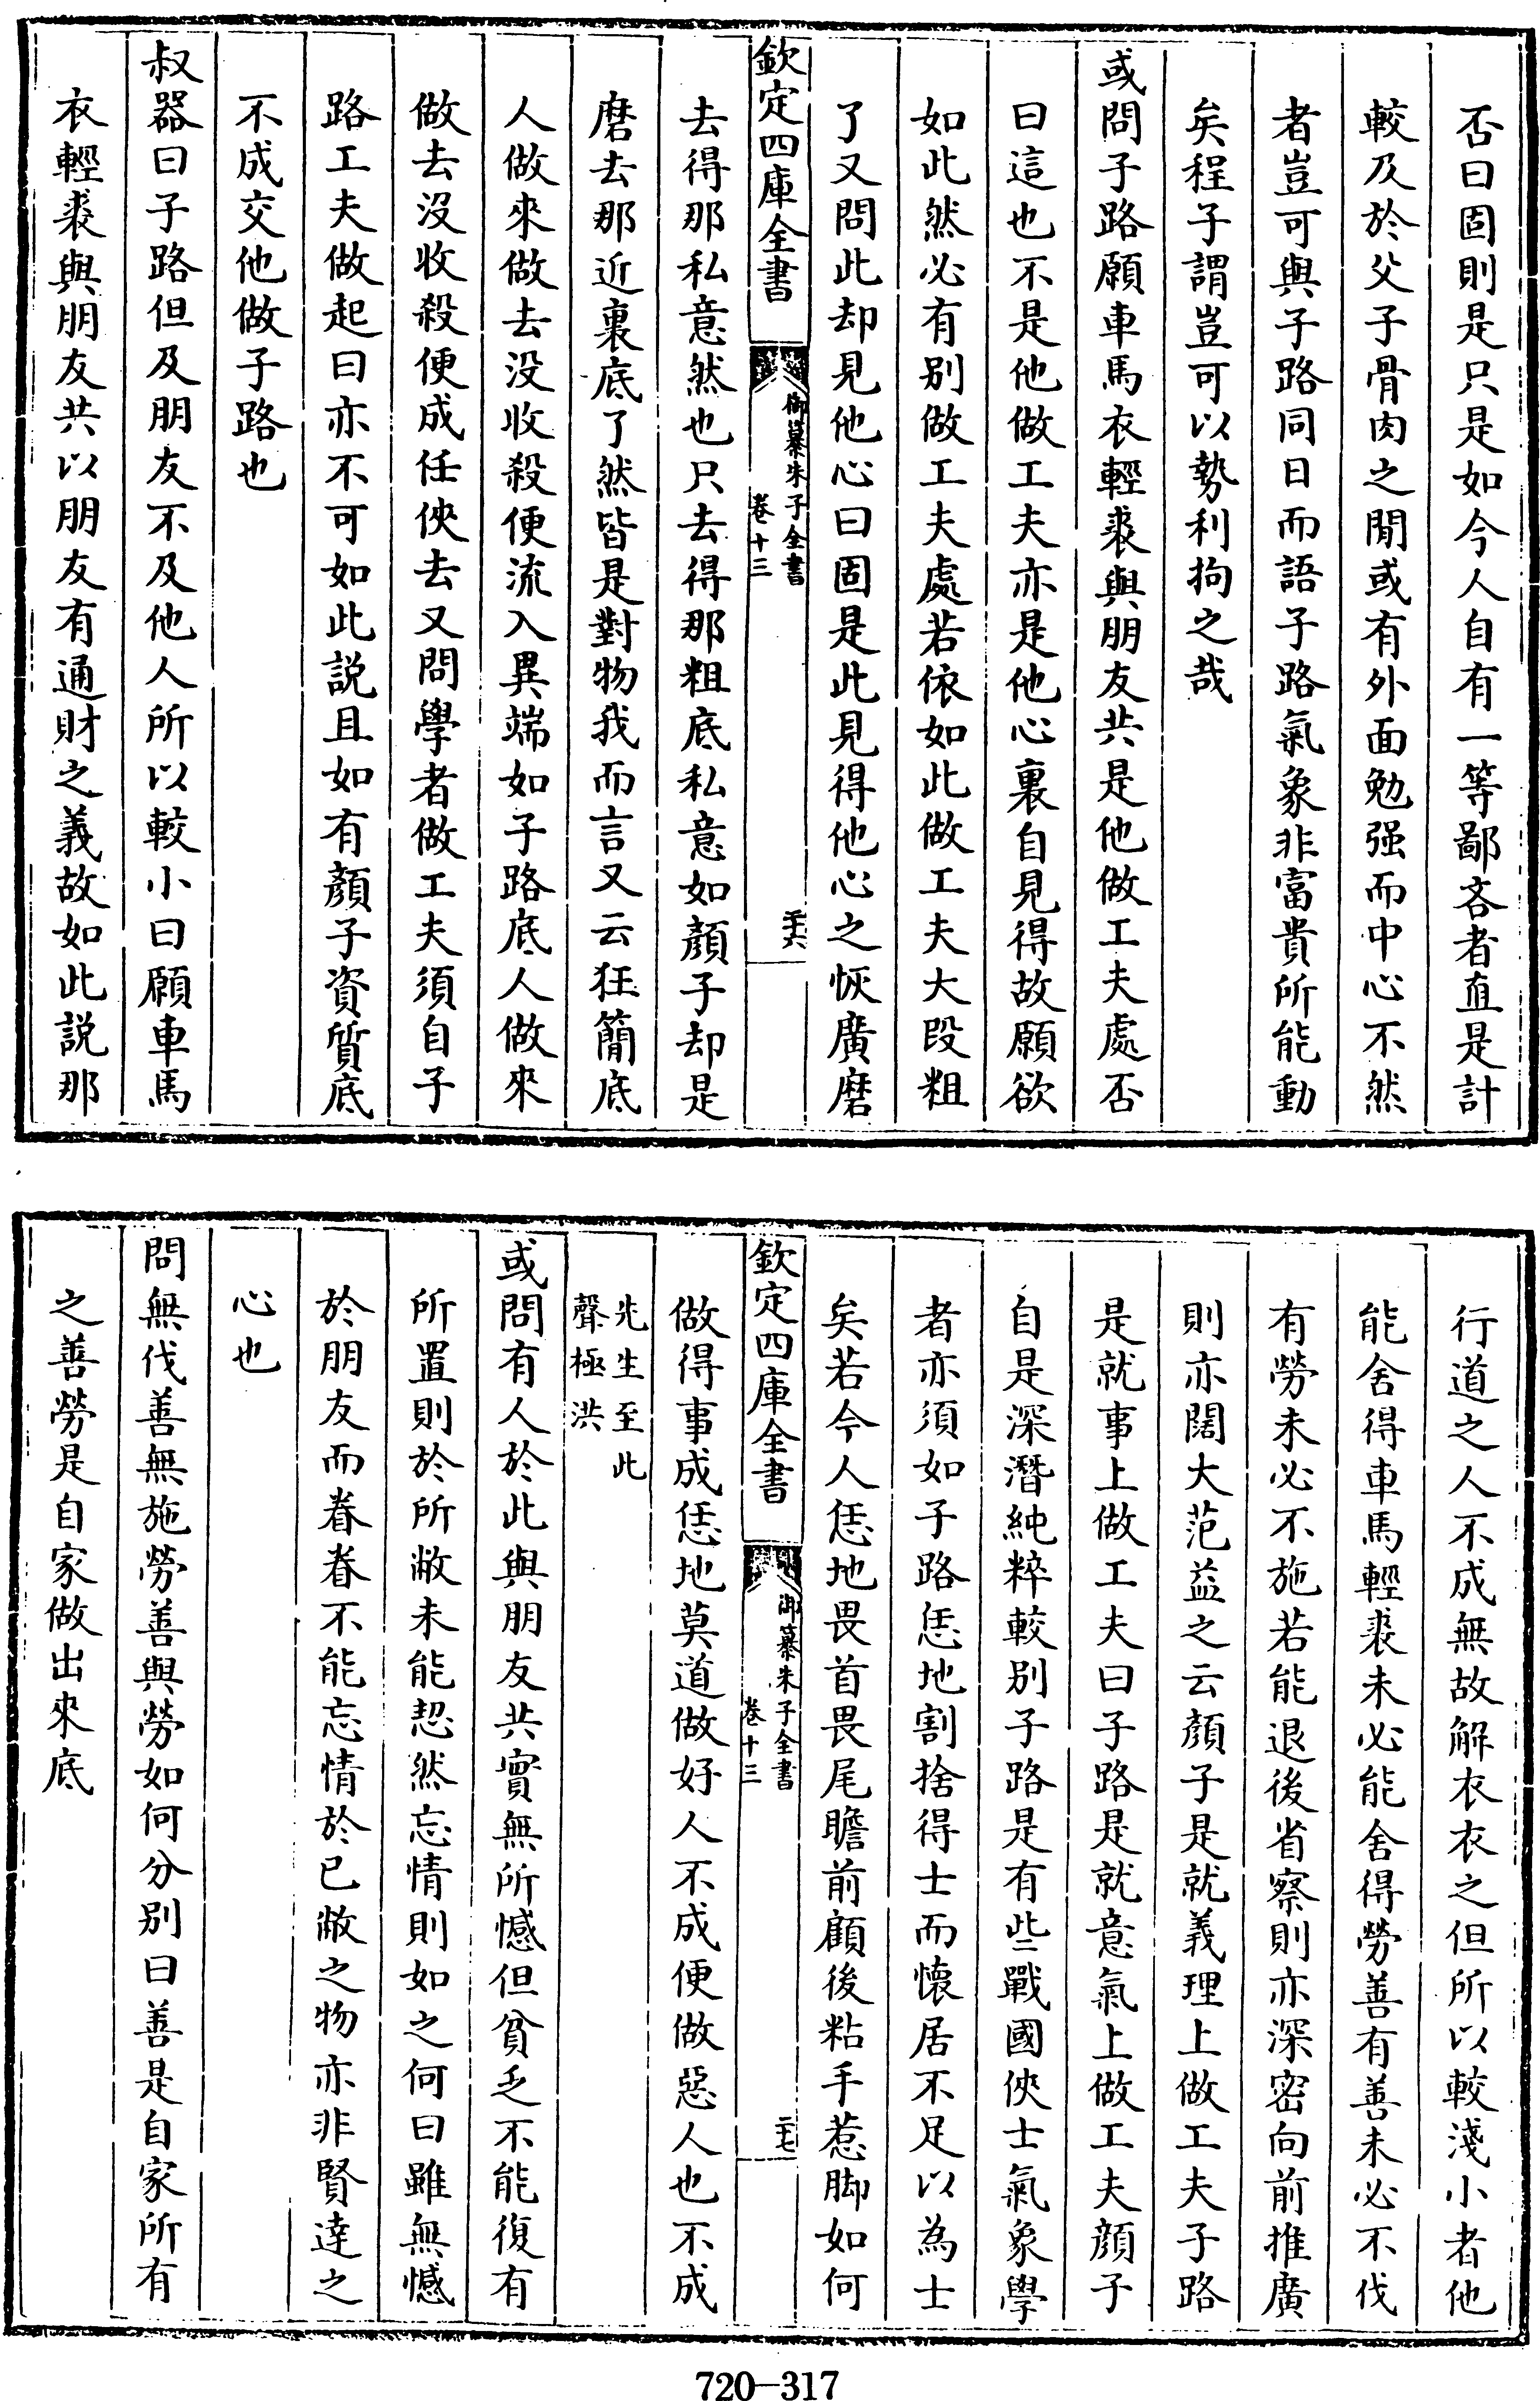 否曰固則是只是如今人自有一等鄙吝者直是計
較及於父子骨肉之閒或有外面勉强而中心不然
者豈可與子路同日而語子路氣象非富貴所能動
矣程子謂豈可以勢利拘之哉
或問子路願車馬衣輕裘與朋友共是他做工夫處否
曰這也不是他做工夫亦是他心裏自見得故願欲
如此然必有别做工夫處若依如此做工夫大段粗
了又問此却見他心曰固是此見得他心之恢廣磨
欽定四庫全書
御纂朱子全書
卷十三
二十六
去得那私意然也只去得那粗底私意如顏子却是
磨去那近裏底了然皆是對物我而言又云狂簡底
人做來做去没收殺便流入異端如子路底人做來
做去没收殺便成任俠去又問學者做工夫須自子
路工夫做起曰亦不可如此説且如有顏子資質底
不成交他做子路也
叔器曰子路但及朋友不及他人所以較小曰願車馬
衣輕裘與朋友共以朋友有通財之義故如此説那
行道之人不成無故解衣衣之但所以較淺小者他
能舍得車馬輕裘未必能舍得勞善有善未必不伐
有勞未必不施若能退後省察則亦深密向前推廣
則亦闊大范益之云顏子是就義理上做工夫子路
是就事上做工夫曰子路是就意氣上做工夫顏子
自是深潛純粹較别子路是有些戰國俠士氣象學
者亦須如子路恁地割捨得士而懷居不足以為士
矣若今人恁地畏首畏尾瞻前顧後粘手惹脚如何
欽定四庫全書
御纂朱子全書
卷十三
二十七
做得事成恁地莫道做好人不成便做惡人也不成
先生至此
聲極洪
或問有人於此與朋友共實無所憾但貧乏不能復有
所置則於所敝未能恝然忘情則如之何曰雖無憾
於朋友而眷眷不能忘情於已敝之物亦非賢達之
心也
問無伐善無施勞善與勞如何分别曰善是自家所有
之善勞是自家做出來底
720-317